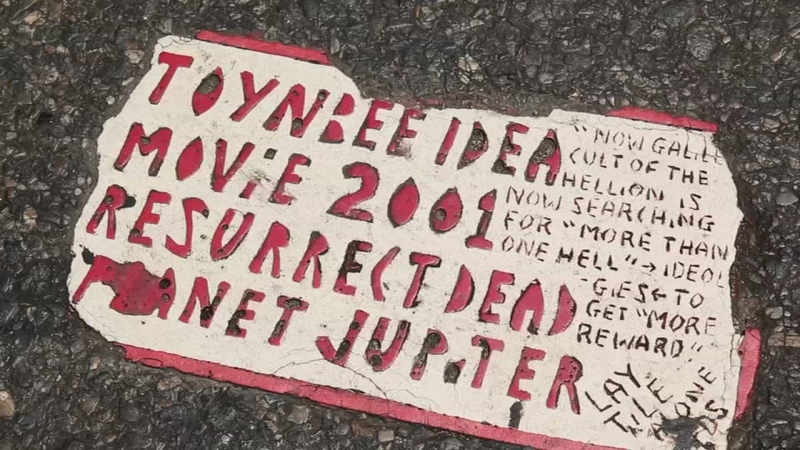 TOYNBEE IDEA
MOViE 2001
RESURRECT DEAD
PLANET JUPiTER
"NOW GALILE
CULT OF THE
HELLION IS
NOW SEARCHING
FOR "MORE THAN
ONE HELL"→IDEOL
-GIES← TO
GET "MORE
REWARD"
LAY
TILE
ALONE